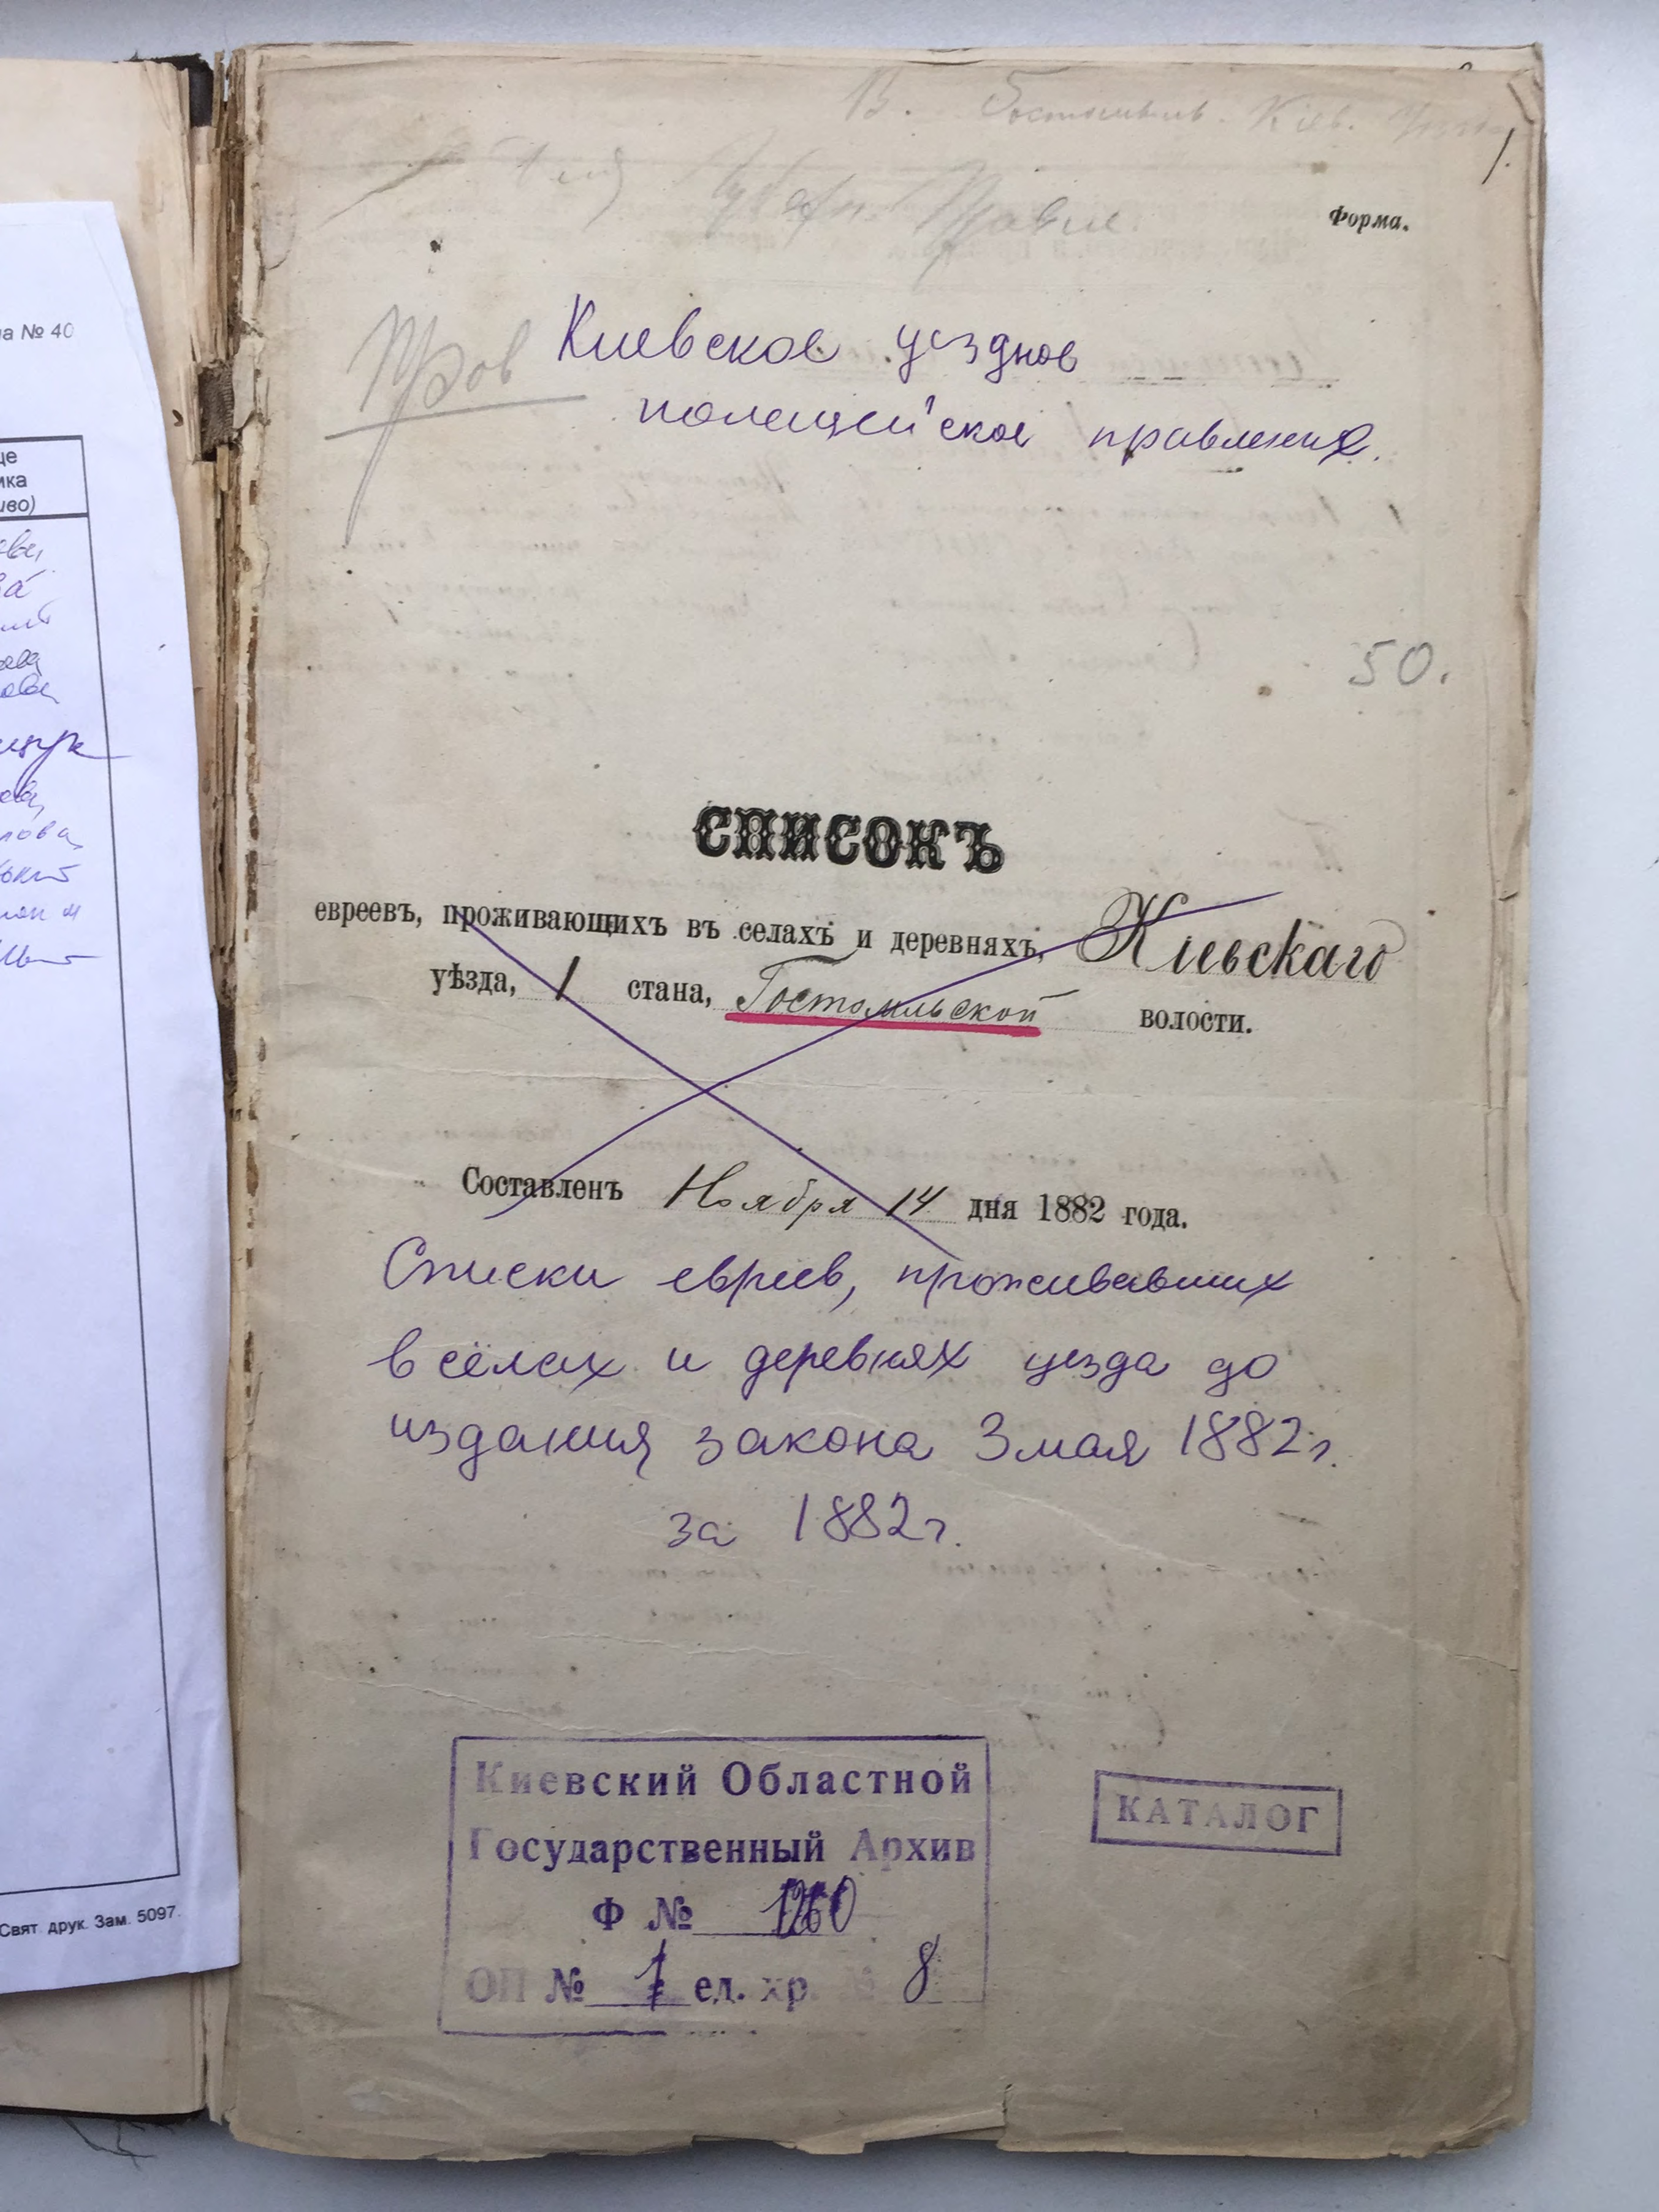 В. Гостомель. Кіев.
1.
Губерн. Правл.
Форма.
Пров
Киевское уездное
полицейское правление.
50.
СПИСОКЪ
евреевъ, проживающихъ въ селахъ и деревняхъ, Кіевскаго
уѣзда, 1 стана, Гостомльской волости.
Составленъ Ноября 14 дня 1882 года.
Списки евреев, проживавших
в сёлах и деревнях уезда до
издания закона 3 мая 1882 г.
за 1882 г.
Киевский Областной
Государственный Архив
Ф № 1260
ОП № 1 ед. хр. № 8
КАТАЛОГ
а № 40
це
ика
иво)
Свят. друк. Зам. 5097.